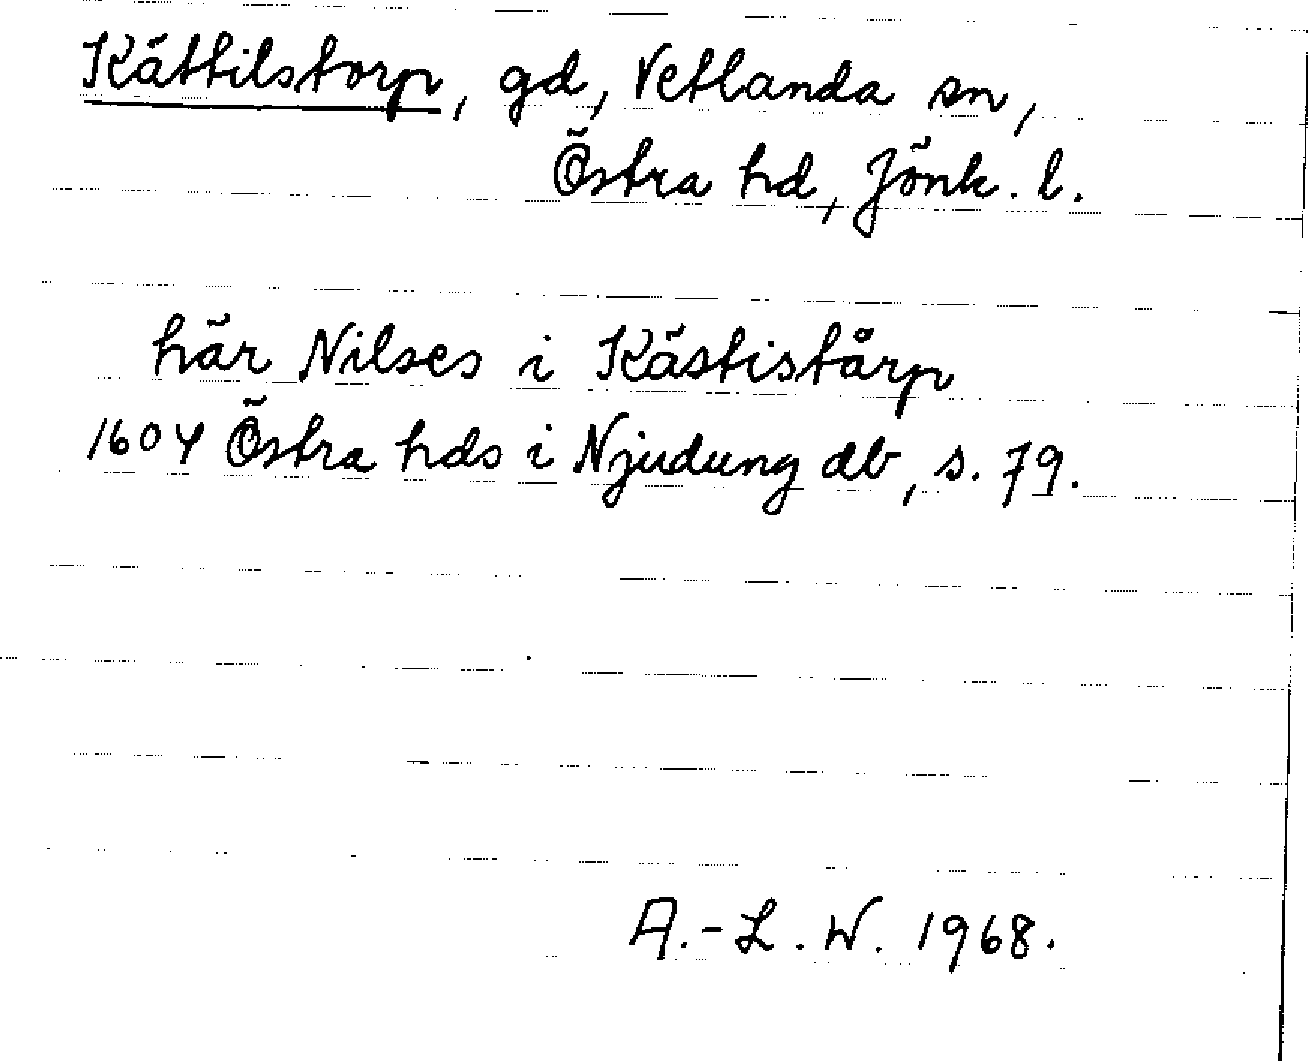 Kättilstorp, gd, Vetlanda sn,
Östra hd, Jönk. l.
här Nilses i Kästistårp
1604 Östra hds i Njudung db, s. 79.
A.-L. W. 1968.